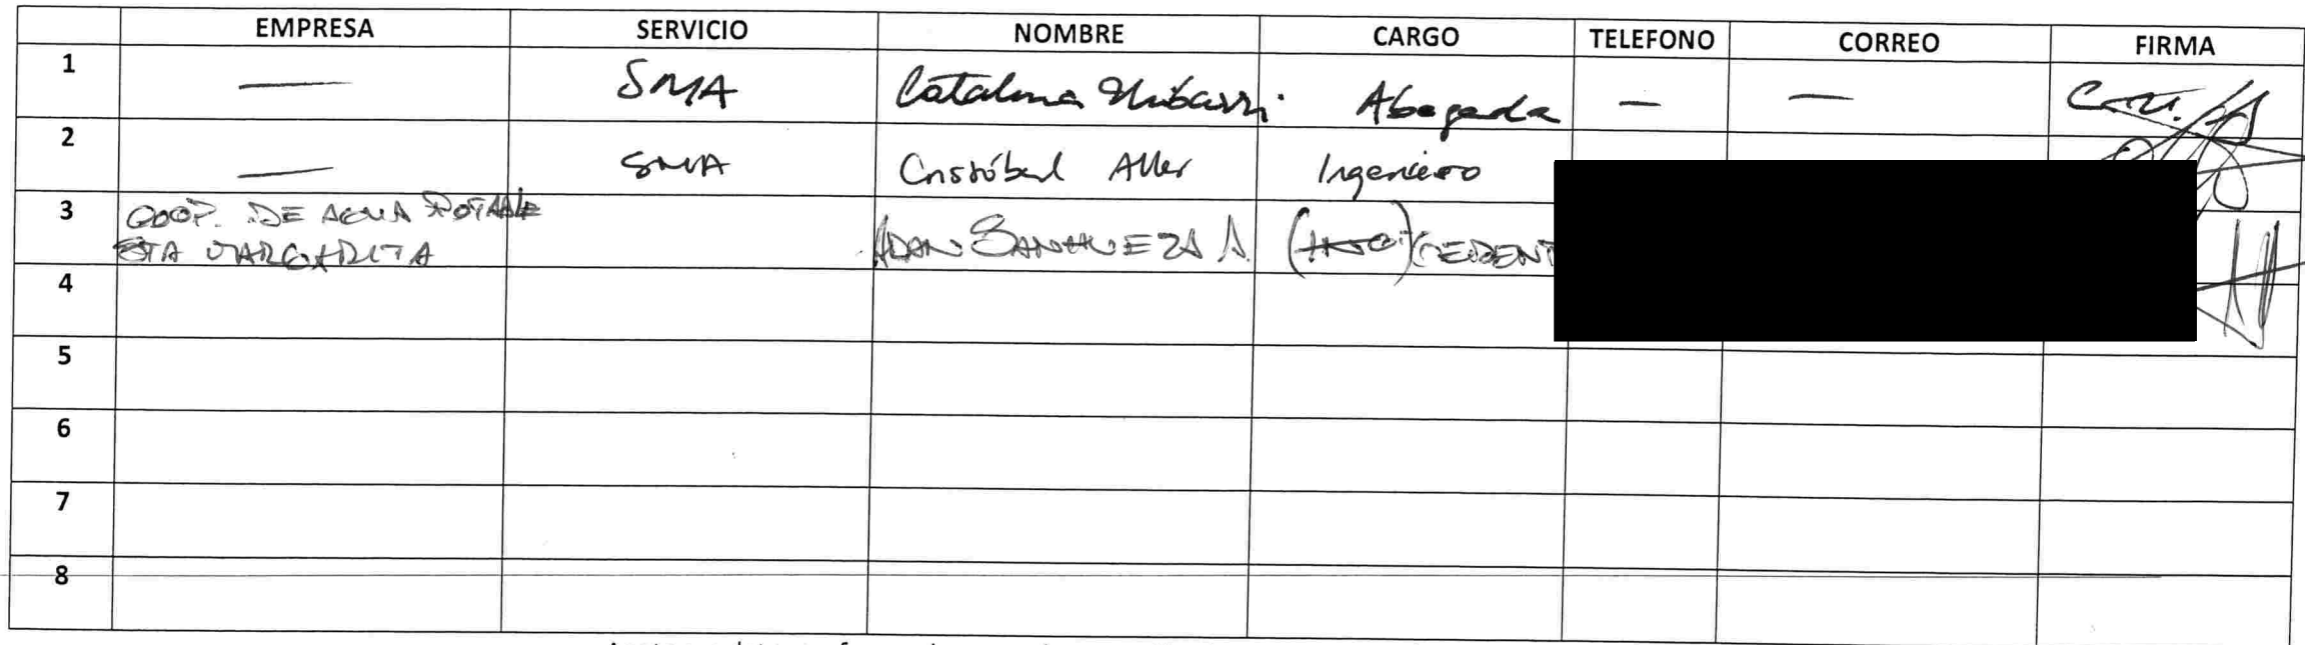 EMPRESA SERVICIO NOMBRE CARGO TELEFONO CORREO FIRMA
1 — SMA Catalina Uribarri Abogada — —
2 — SMA Cristóbal Aller Ingeniero
3 COOP. DE AGUA POTABLE
STA MARGARITA ADAN SANHUEZA A.
4
5
6
7
8